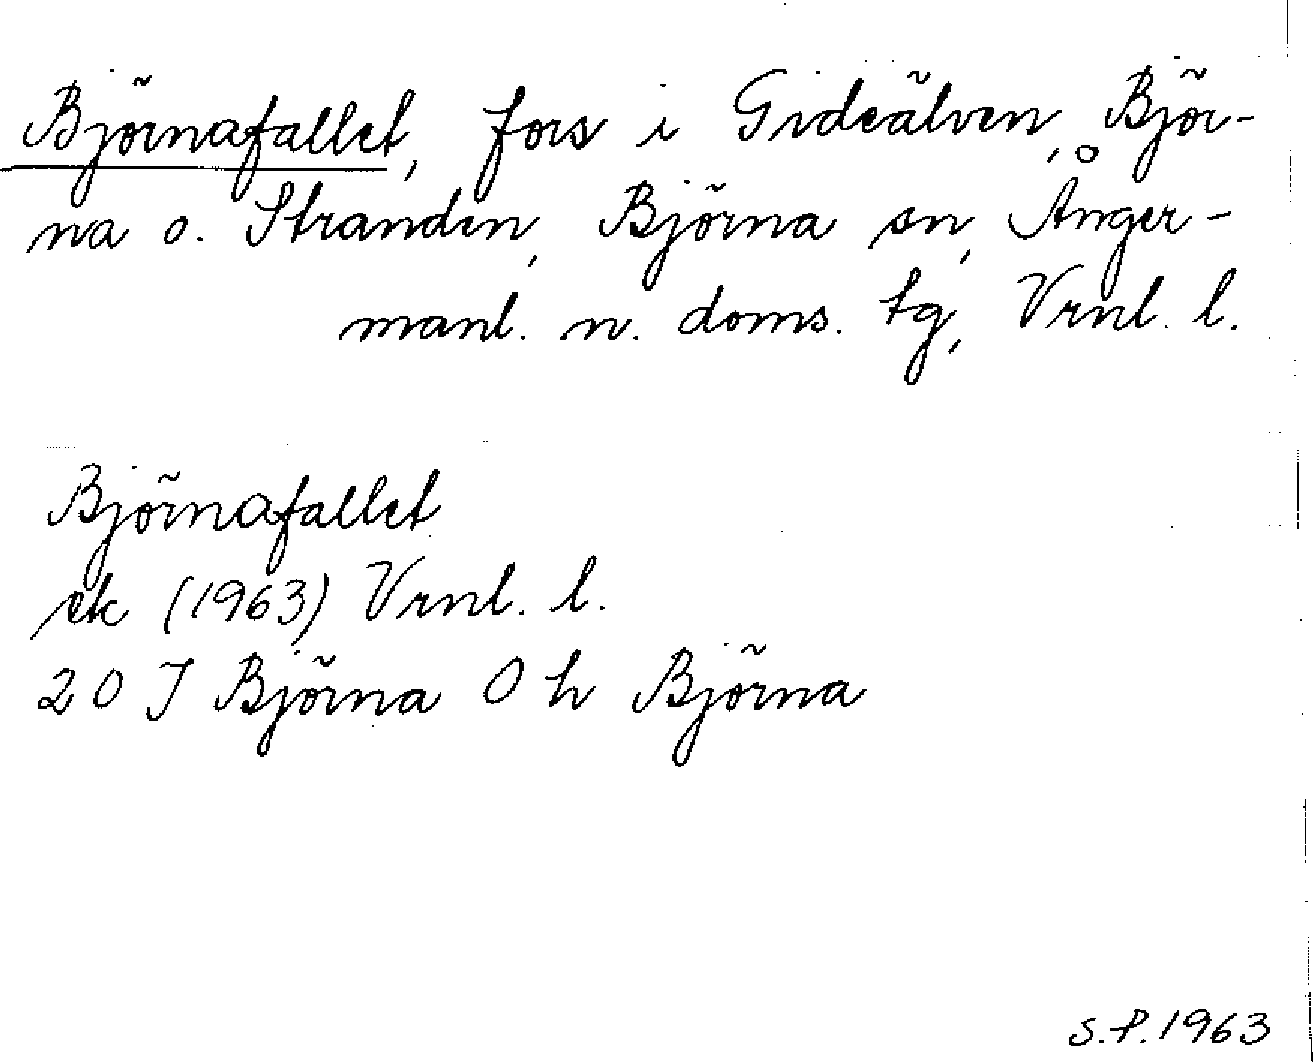 Björnafallet, fors i Gideälven, Björ-
na o. Stranden, Björna sn, Ånger-
manl. n. doms. tg, Vrnl. l.
Björnafallet
ek (1963) Vrnl. l.
20 J Björna 0 h Björna
S.P. 1963